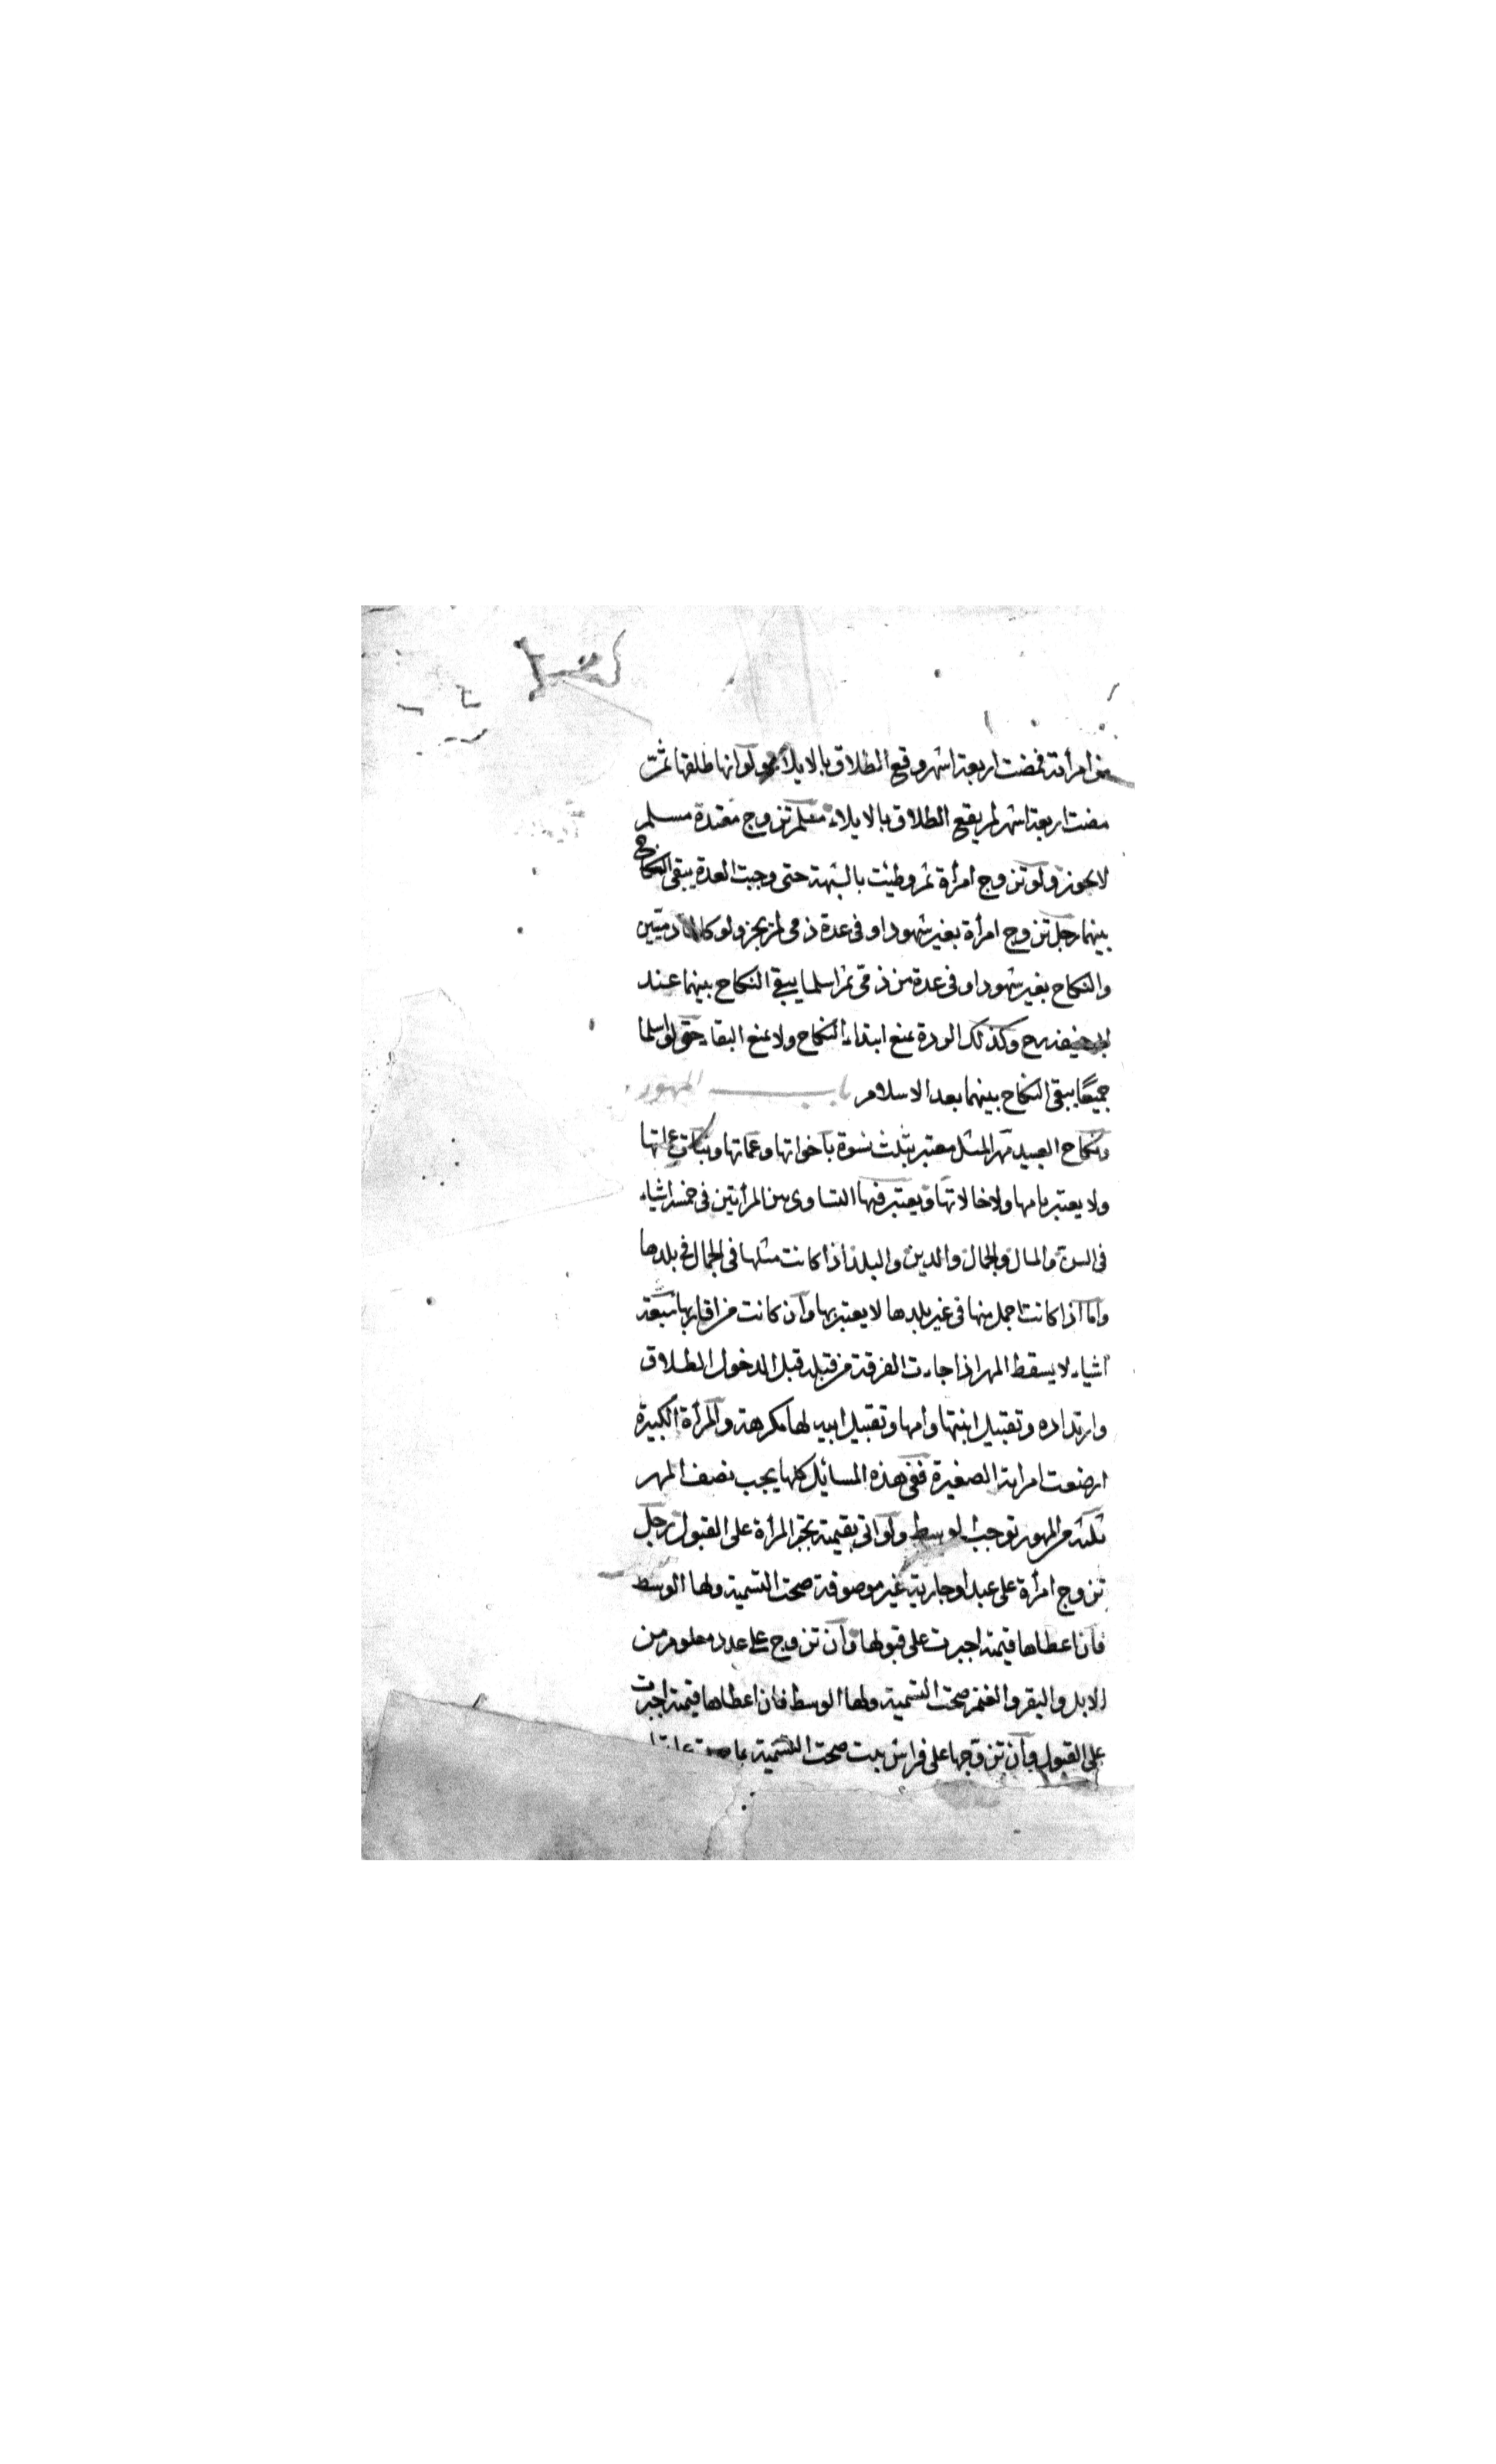 من امرأته فمضت اربعة اشهر وقع الطلاق بالايلاء ولو انها طلقها ثم
مضت اربعة اشهر لم يقع الطلاق بالايلاء تزوج معتدة مسلم
لا يجوز ولو تزوج امرأة ثم وطئت بالشبهة حتى وجبت العدة يبقى النكاح
بينهما رجل تزوج امرأة بغير شهود او فى عدة ذمى لم يجز ولو كانا ذميين
والنكاح بغير شهود او فى عدة من ذمى ثم اسلما يبقى النكاح بينهما عند
ابى حنيفة رح وكذلك الردة تمنع ابتداء النكاح ولا تمنع البقاء حتى لو اسلما
جميعًا يبقى النكاح بينهما بعد الاسلام باب المهور
ونكاح العبيد مهر المثل معتبر بثلث نسوة باخواتها وعماتها وبنات عماتها
ولا يعتبر بامها ولا خالاتها ويعتبر فيها التساوى من المرأتين فى خمس اشياء
فى السن والمال والجمال والدين والبلد اذا كانت مثلها فى الجمال فى بلدها
واما اذا كانت اجمل منها فى غير بلدها لا يعتبر بها وان كانت من اقاربها سبعة
اشياء لا يسقط المهر اذا جاءت الفرقة من قبله قبل الدخول الطلاق
وارتداده وتقبيل ابنتها وامها وتقبيل ابيه لها مكرهة والمرأة الكبيرة
ارضعت امراته الصغيرة ففى هذه المسائل كلها يجب نصف المهر
ثلثة من المهور توجب الوسط ولو اتى بقيمته تجبر المرأة على القبول رجل
تزوج امرأة على عبد او جارية غير موصوفة صحت التسمية ولها الوسط
فان اعطاها قيمته اجبرت على قبولها وان تزوج على عدد معلوم من
الابل والبقر والغنم صحت التسمية ولها الوسط فان اعطاها قيمته اجبرت
على القبول وان تزوجها على فراش بيت صحت التسمية